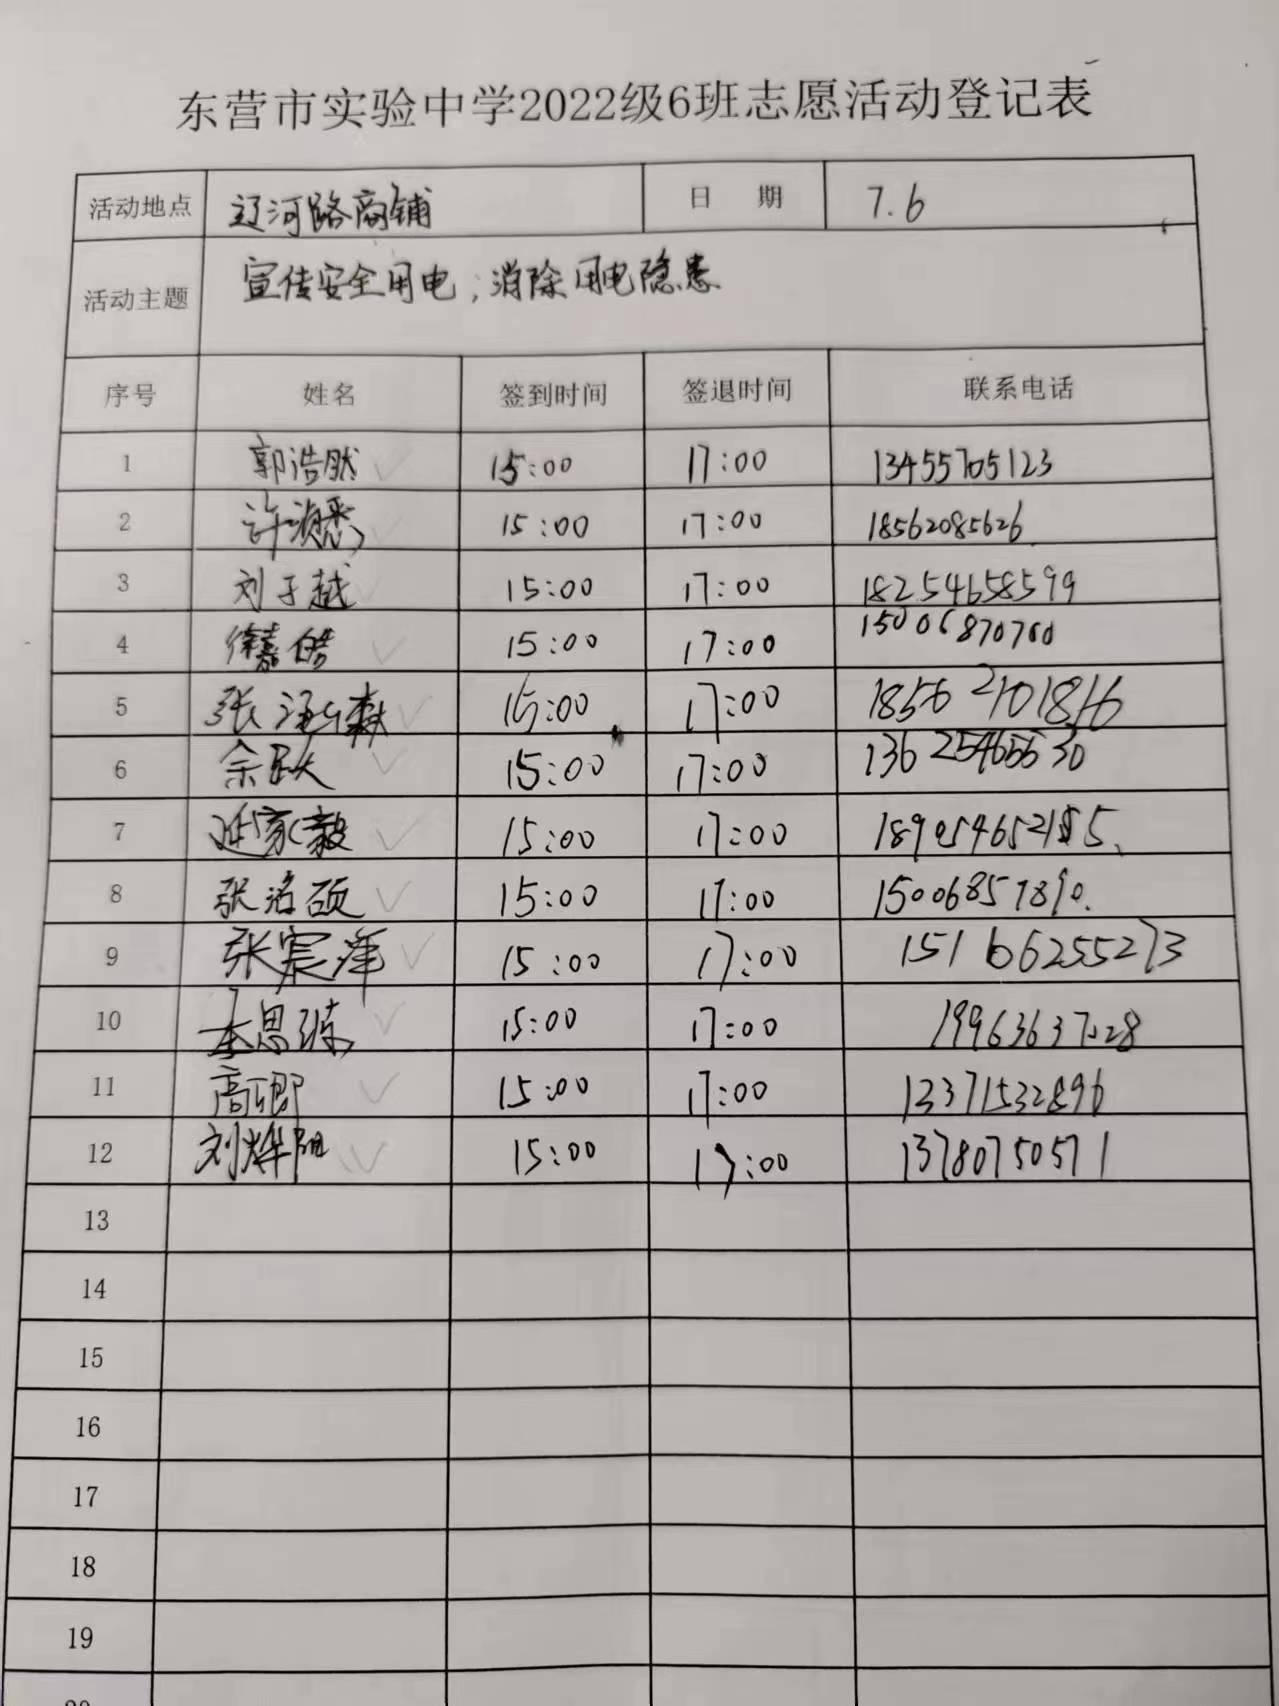 东营市实验中学2022级6班志愿活动登记表
活动地点 辽河路商铺 日 期 7.6
活动主题 宣传安全用电；消除用电隐患
序号 姓名 签到时间 签退时间 联系电话
1 郭浩然 15:00 17:00 13455705123
2 15:00 17:00 18562085626
3 刘子越 15:00 17:00 18254658599
4 徐嘉皓 15:00 17:00 15006870760
5 15:00 17:00 18562101816
6 余跃 15:00 17:00
7 15:00 17:00
8 张洺硕 15:00 17:00 15006857890.
9 张宸萍 15:00 17:00 15166255273
10 15:00 17:00
11 高卿 15:00 17:00 13371532896
12 刘烨阳 15:00 17:00 13780750571
13
14
15
16
17
18
19